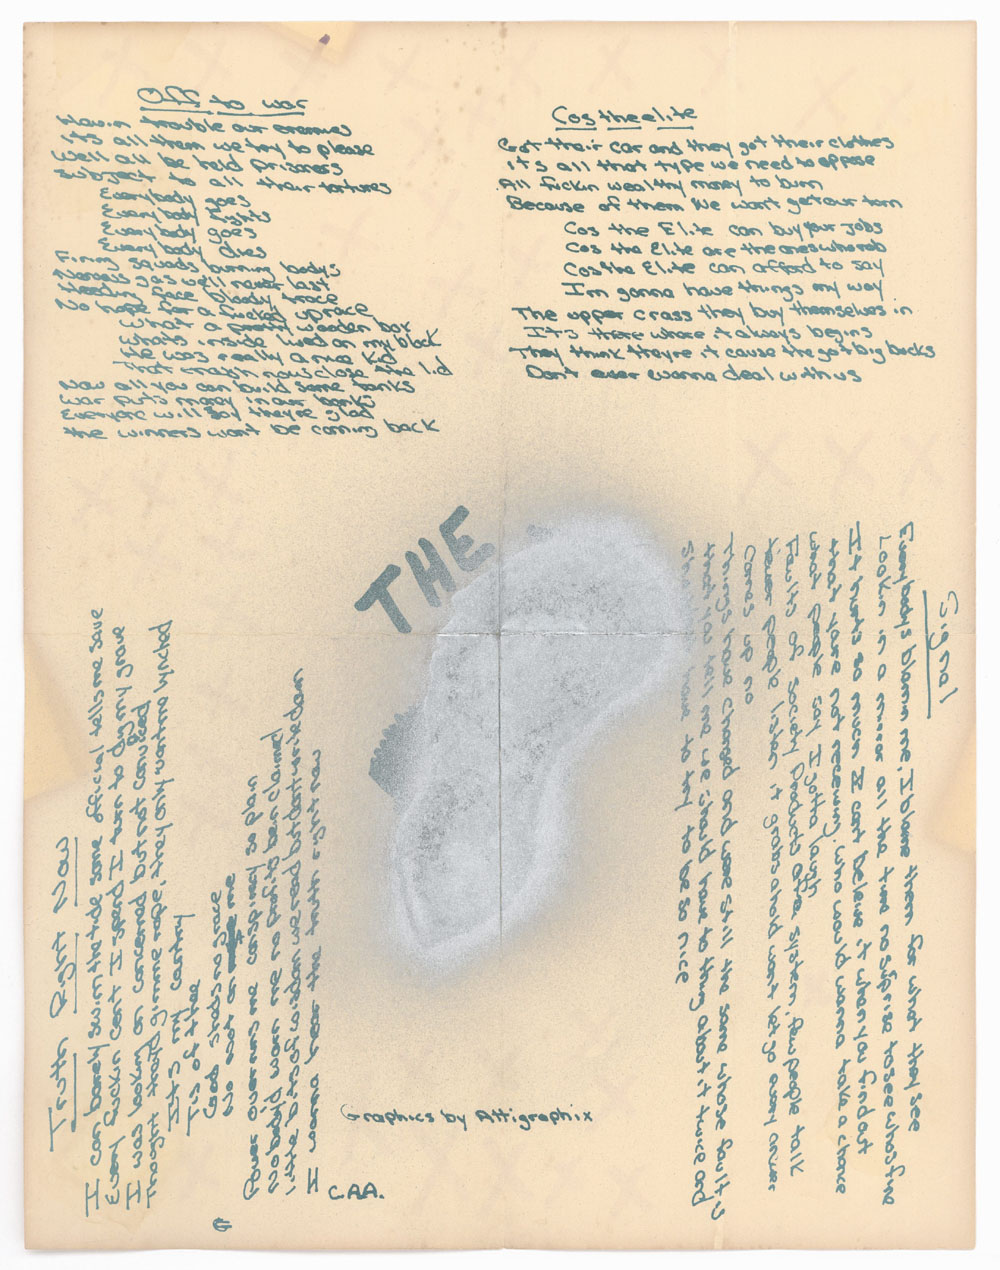 Off to war
Havin trouble our enemies
it's all them we try to please
Well all be held prisners
Subject to all their tortures
Everybody goes
Everybody fights
Everybody goes
Everybody dies
Firing squads burning bodys
Nerves gas we'll never last
bloody trace
No hope for a fucked up race
What a pretty wooden box
Whats inside lived on my block
He was really a nice kid
That enough now close the lid
Now all you can build some tanks
War puts money in our banks
Everyone will say they're glad
the winners wont be coming back
Cos the elite
Got their car and they got their clothes
it's all that type we need to oppose
All fuckin wealthy money to burn
Because of them We won't get our turn
Cos the Elite can buy your jobs
Cos the Elite are the ones who rob
Cos the Elite can afford to say
I'm gonna have things my way
The upper crass they buy themselves in
It's there where it always begins
They think they're it cause the got big bucks
Don't ever wanna deal with us
THE
Signal
Everybodys blamin me, I blame them for what they see
Lookin in a mirror all the time no suprise to see whos fine
It hurts so much I cant beleive it when you find out
that youre not reseeiving, who would wanna take a chance
what people say I gotta laugh
Faults of society Products of the system, few people talk
fewer people listen it grabs ahold wont let go every answer
Comes up no
Things have changed and were still the same whose fault is
that you tell me we should have to thing about it twice and
have to try to be so nice
Truth Right Now
I can barely swim the tide some official tells me save
Every fuckin cent I spend I turn to dig my grave
I was lookin on concerned but not convised
Thought that'd gimme rope, they only want me lynched
It's my contry
Tis of thee
God sheds no grace
No not on me
Power overruns me conspiricy so plan
No body'd warn me no profit to been claimed
little bits of wisdom we read bit
I wanna hear the truth right now
Graphics by Attigraphix
C.A.A.